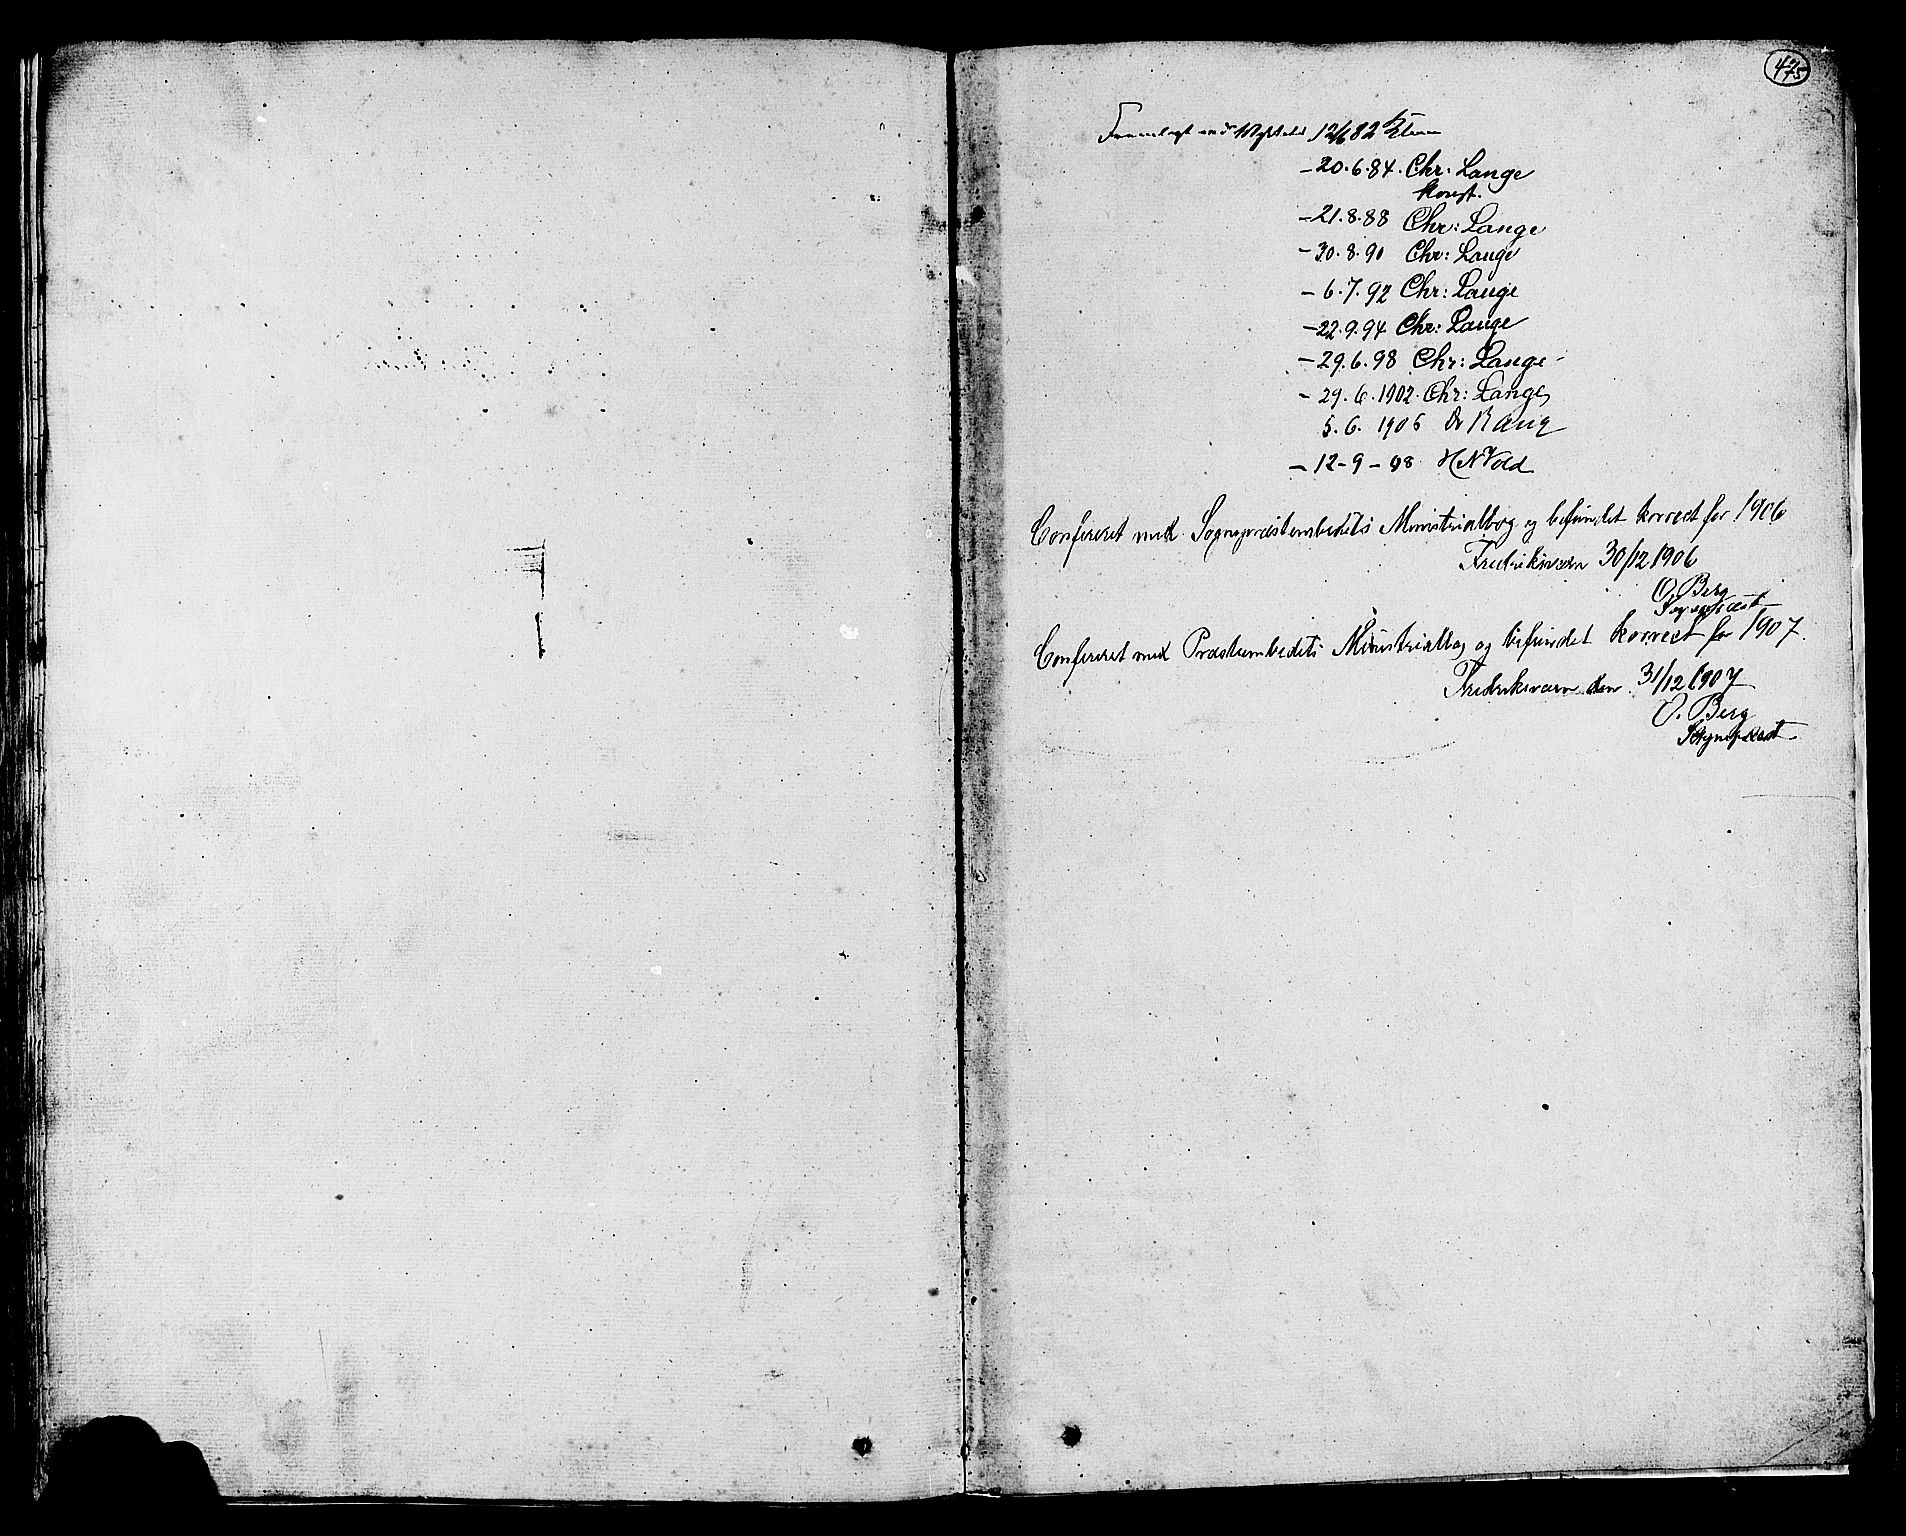 475
Fremlagt ved 12/6 82
- 20.6.84. Chr. Lange
konst.
- 21.8.88 Chr: Lange
- 30.8.90 Chr: Lange
- 6.7.92 Chr: Lange
- 22.9.94 Chr: Lange
- 29.6.98 Chr: Lange
- 29.6.1902. Chr: Lange
5.6. 1905
- 12-9-08 H N Vold
Confereret med Sognepræstembedets Ministrialbog og befundet korrect for 1906
Fredriksværn 30/12 1906
O. Berg
Sognepræst
Confereret med Præstembedets Ministrialbog og befundet korrect for 1907.
Fredriksværn den 31/12 1907
O. Berg
Sognepræst.